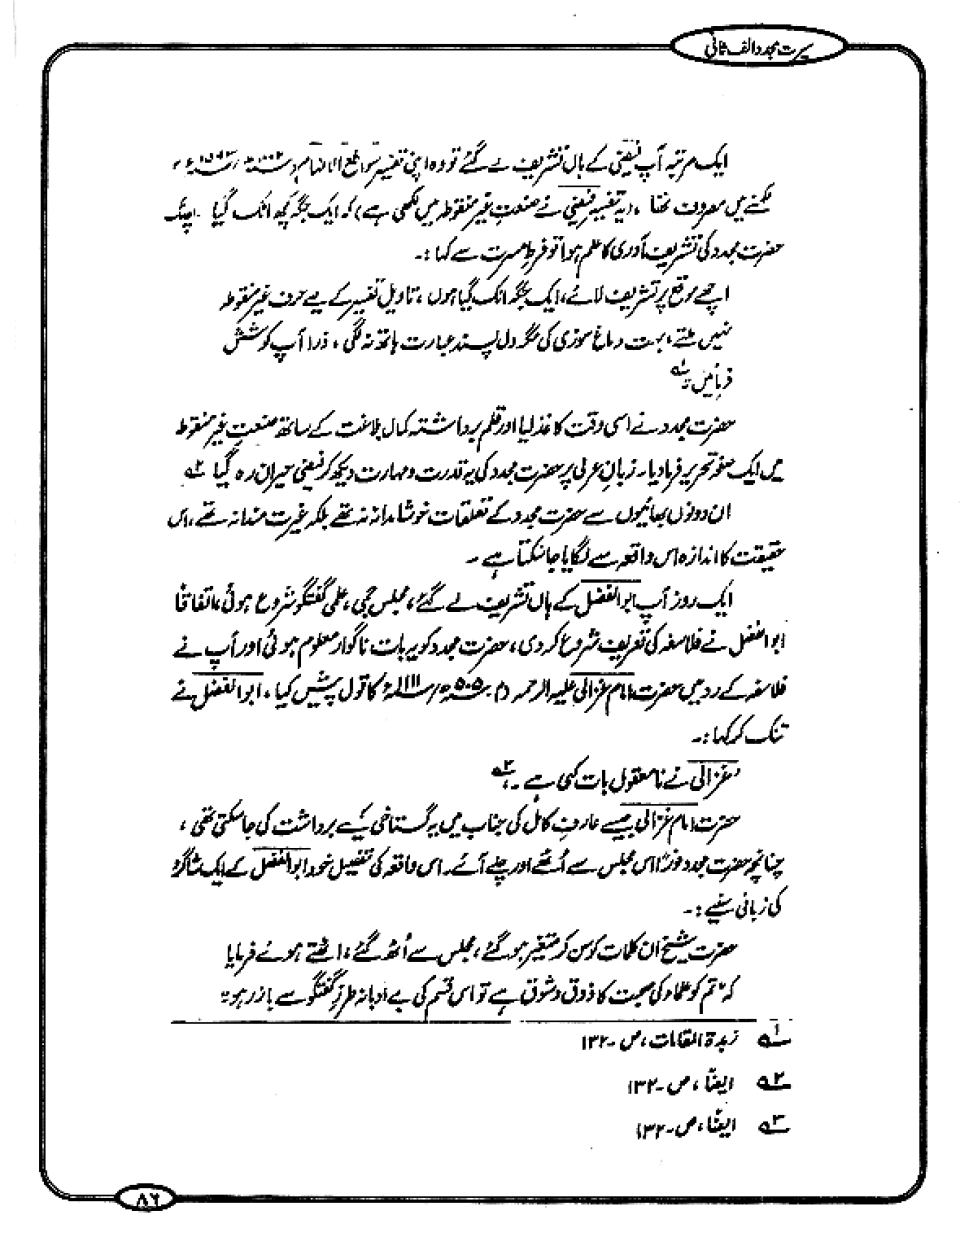 سیرت مجدد الف ثانی
ایک مرتبہ آپ فیضی کے ہاں تشریف لے گئے تو وہ اپنی تفسیر سواطع الالہام
لکھنے میں مصروف تھا ، (یہ تفسیر فیضی نے صنعتِ غیر منقوطہ میں لکھی ہے) کہ ایک جگہ کچھ اٹک گیا
حضرت مجدد کی تشریف آوری کا علم ہوا تو فرطِ مسرت سے کہا :۔
اچھے موقع پر تشریف لائے ، ایک جگہ اٹک گیا ہوں ، تاویل تفسیر کے لیے حرف غیر منقوطہ
نہیں ملتے ، بہت دماغ سوزی کی مگر دل پسند عبارت ہاتھ نہ لگی ، ذرا آپ کوشش
فرمائیں ۔ ۱؎
حضرت مجدد نے اسی وقت کاغذ لیا اور قلم برداشتہ کمال بلاغت کے ساتھ صنعت غیر منقوطہ
میں ایک صفحہ تحریر فرما دیا ۔ زبانِ عربی پر حضرت مجدد کی یہ قدرت و مہارت دیکھ کر فیضی حیران رہ گیا ۲؎
ان دونوں بھائیوں سے حضرت مجدد کے تعلقات خوشامدانہ نہ تھے بلکہ غیرت مندانہ تھے ، اس
حقیقت کا اندازہ اس واقعہ سے لگایا جا سکتا ہے ۔
ایک روز آپ ابوالفضل کے ہاں تشریف لے گئے ، مجلس جمی ، علمی گفتگو شروع ہوئی ، اتفاقاً
ابوالفضل نے فلاسفہ کی تعریف شروع کر دی ، حضرت مجدد کو یہ بات ناگوار معلوم ہوئی اور آپ نے
فلاسفہ کے رد میں حضرت امام غزالی علیہ الرحمہ (م ۔ ۵۰۵ھ/۱۱۱۱ء) کا قول پیش کیا ، ابوالفضل نے
تنک کر کہا :۔
'غزالی نے نامعقول بات کہی ہے ۔' ۳؎
حضرت امام غزالی جیسے عارفِ کامل کی جناب میں یہ گستاخی کیسے برداشت کی جا سکتی تھی ،
چنانچہ حضرت مجدد فوراً اس مجلس سے اُٹھے اور چلے آئے ۔ اس واقعہ کی تفصیل خود ابوالفضل کے ایک شاگرد
کی زبانی سنیے :۔
حضرت شیخ ان کلمات کو سن کر متغیر ہو گئے ، مجلس سے اُٹھ گئے ، اٹھتے ہوئے فرمایا
کہ "تم کو علماء کی صحبت کا ذوق و شوق ہے تو اس قسم کی بے ادبانہ طرزِ گفتگو سے باز رہو"
۱؎ زبدۃ المقامات ، ص ۔ ۱۳۲
۲؎ ایضاً ، ص ۔ ۱۳۲
۳؎ ایضاً ، ص ۔ ۱۳۲
۸۲